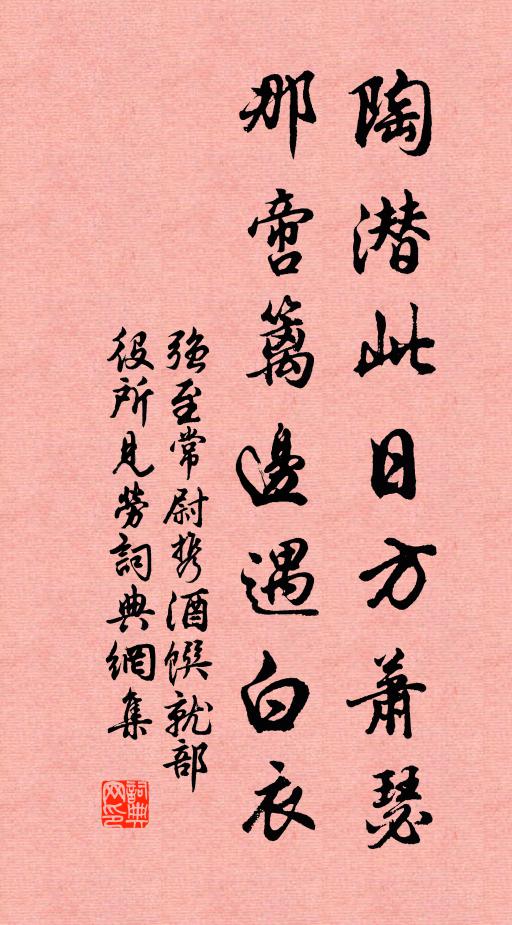 陶潜此日方蕭瑟
那啻籬邊遇白衣
強至常尉攜酒饌就部
役所見勞詞典網集
詞典网印